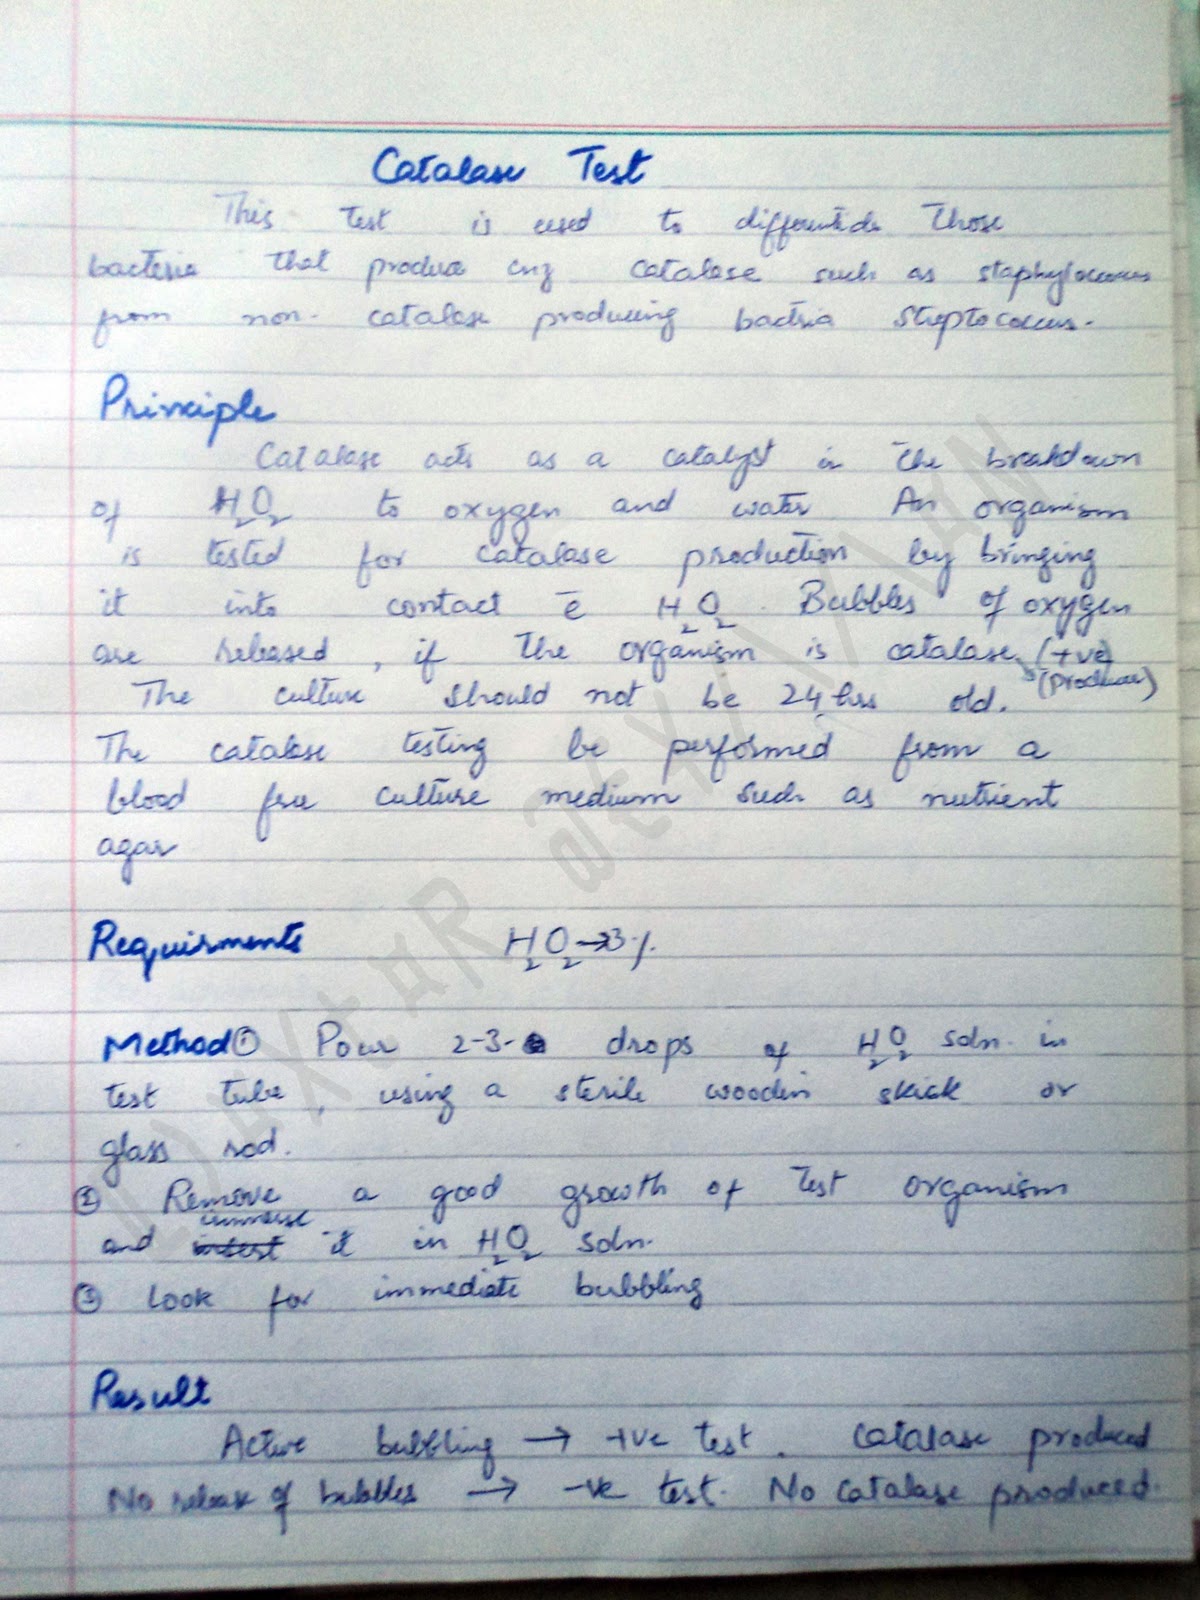 Catalase Test
This test is used to differentiate those
bacteria that produce enz catalase such as staphylococcus
from non-catalase producing bactria streptococcus.
Principle
Catalase acts as a catalyst in the breakdown
of H2O2 to oxygen and water An organism
is tested for catalase production by bringing
it into contact c̄ H2O2. Bubbles of oxygen
are released, if the organism is catalase (+ve)
(producer)
The culture should not be 24 hrs old.
The catalase testing be performed from a
blood free culture medium such as nutrient
agar
Requirments H2O2 → 3%
Method ① Pour 2-3- drops of H2O2 soln. in
test tube, using a sterile wooden skick or
glass rod.
② Remove a good growth of test organism
and immerse it in H2O2 soln.
③ Look for immediate bubbling
Result
Active bubbling → +ve test. Catalase produced
No release of bubbles → -ve test. No catalase produced.